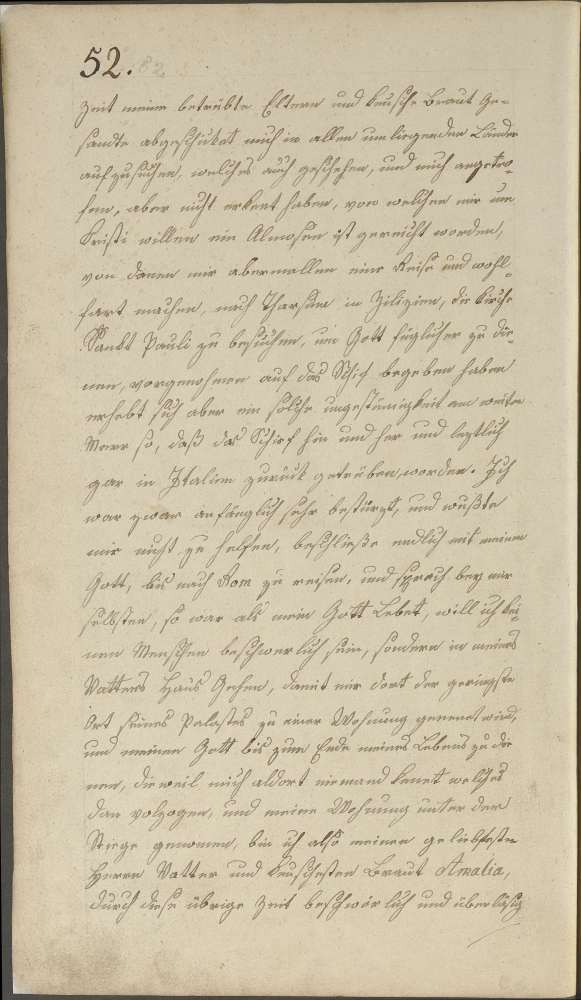 52. 82
Zeit meine betrübte Eltern und keusche Braut Ge-
sandte abgeschücket mich in allen umliegenden Länder
aufzusuchen, welches auch geschehen, und mich angetro-
fen, aber nicht erkent haben, von welchen mir um
Kristi willen ein Almosen ist gereicht worden,
von danen mir abermallen eine Reise und wohl-
fart machen, nach Tharsum in Zilizien, die Kirche
Sankt Pauli zu besuchen, um Gott füglicher zu die-
nen, vorgenohmen auf das Schif begeben haben
erhebt sich aber ein solche ungestümigkeit am weiten
Meere so, daß das Schief hin und her und leztlich
gar in Italien zurück getrieben worden. Ich
war zwar anfänglich sehr bestürzt, und wußte
mir nicht zu helfen, beschließe endlich mit meinem
Gott, bis nach Rom zu reisen, und sprach bey mir
selbsten, so war als mein Gott Lebet, will ich kei-
nen Menschen beschwerlich sein, sondern in meines
Vatters Haus Gehen, damit mir dort der geringste
Ort seines Palastes zu einer Wohnung genent wird,
und meinen Gott bis zum Ende meines Lebens zu die
nen, dieweil mich aldort niemand kennet welches
dan volzogen, und meine Wohnung unter der
Stiege genomen, bin ich also meinen geliebtesten
Herrn Vatter und keuschesten Braut Amalia,
durch diese übrige Zeit beschwärlich und überläsig